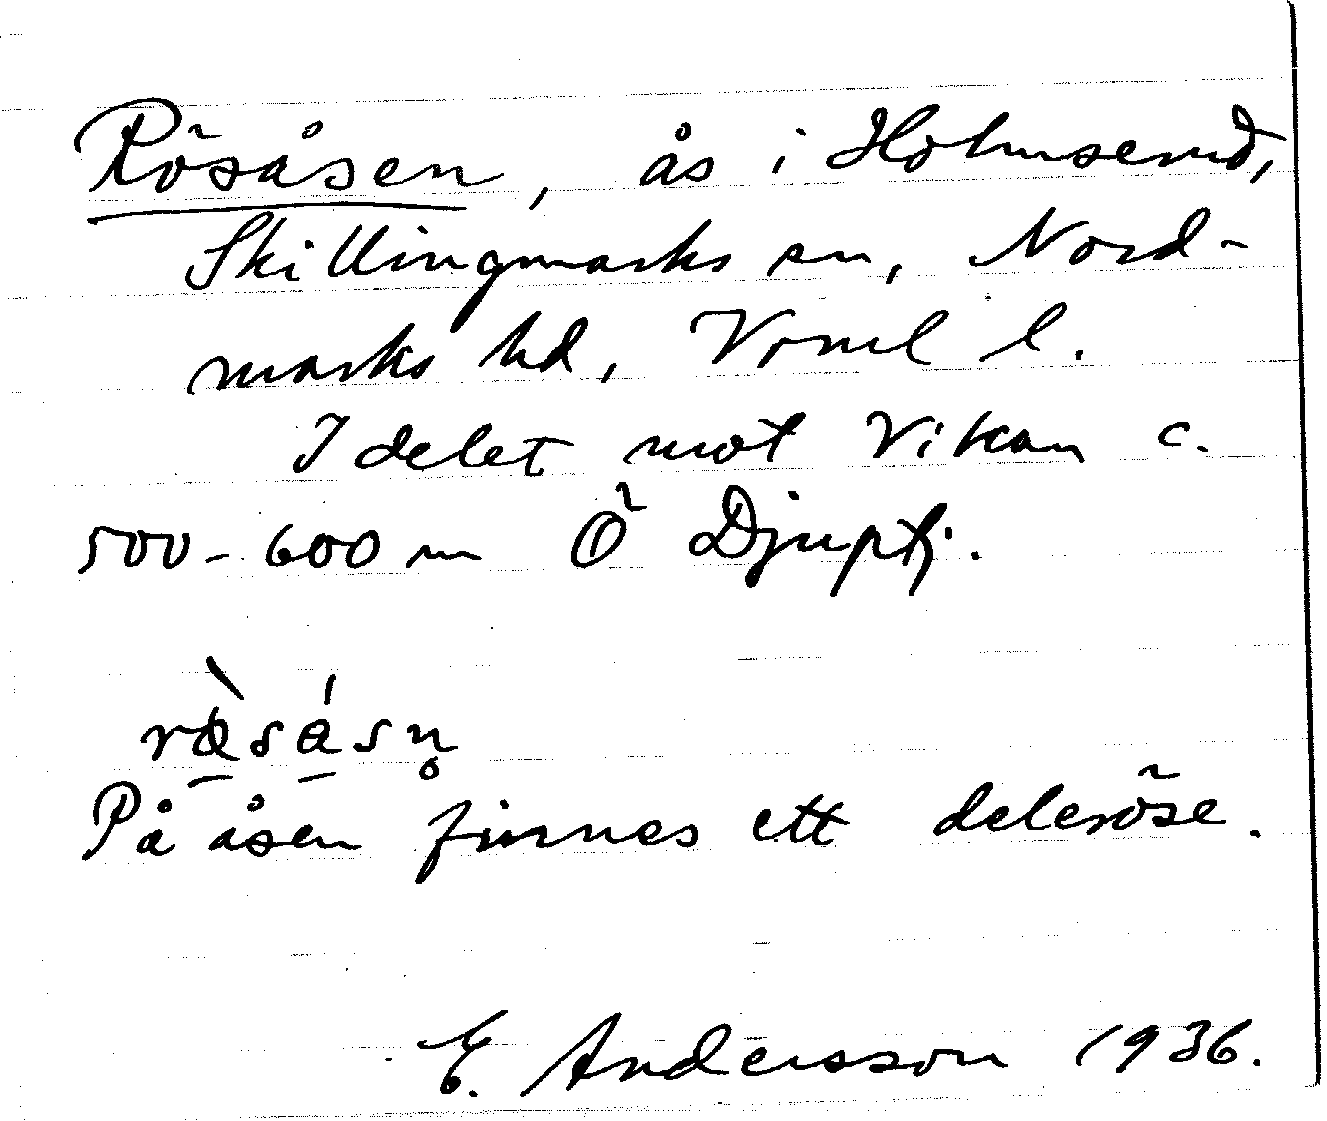 Rösåsen, ås i Holmserud,
Skillingmarks sn, Nord-
marks hd, Vrml l.
I delet mot Vikan c.
500-600 m Ö Djuptj.
På åsen finnes ett deleröse.
E. Andersson 1936.